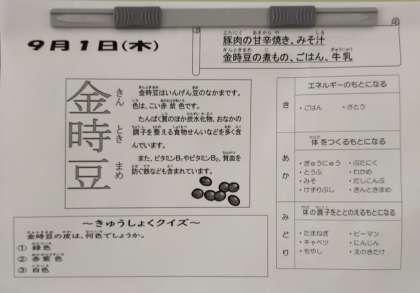 9月1日(木)
豚肉の甘辛焼き、みそ汁
金時豆の煮もの、ごはん、牛乳
金時豆
きん とき まめ
金時豆はいんげん豆のなかまです。
色は、こい赤紫色です。
たんぱく質のほか炭水化物、おなかの
調子を整える食物せんいなどを多く含
んでいます。
また、ビタミンB₁やビタミンB₂、貧血を
防ぐ鉄なども含まれています。
エネルギーのもとになる
き
・ごはん ・さとう
体をつくるもとになる
あか
・ぎゅうにゅう ・ぶたにく
・とうふ ・わかめ
・みそ ・だしこんぶ
・けずりぶし ・きんときまめ
体の調子をととのえるもとになる
みどり
・たまねぎ ・ピーマン
・キャベツ ・にんじん
・もやし ・えのきたけ
～きゅうしょくクイズ～
金時豆の皮は、何色でしょうか。
① 緑色
② 赤紫色
③ 白色